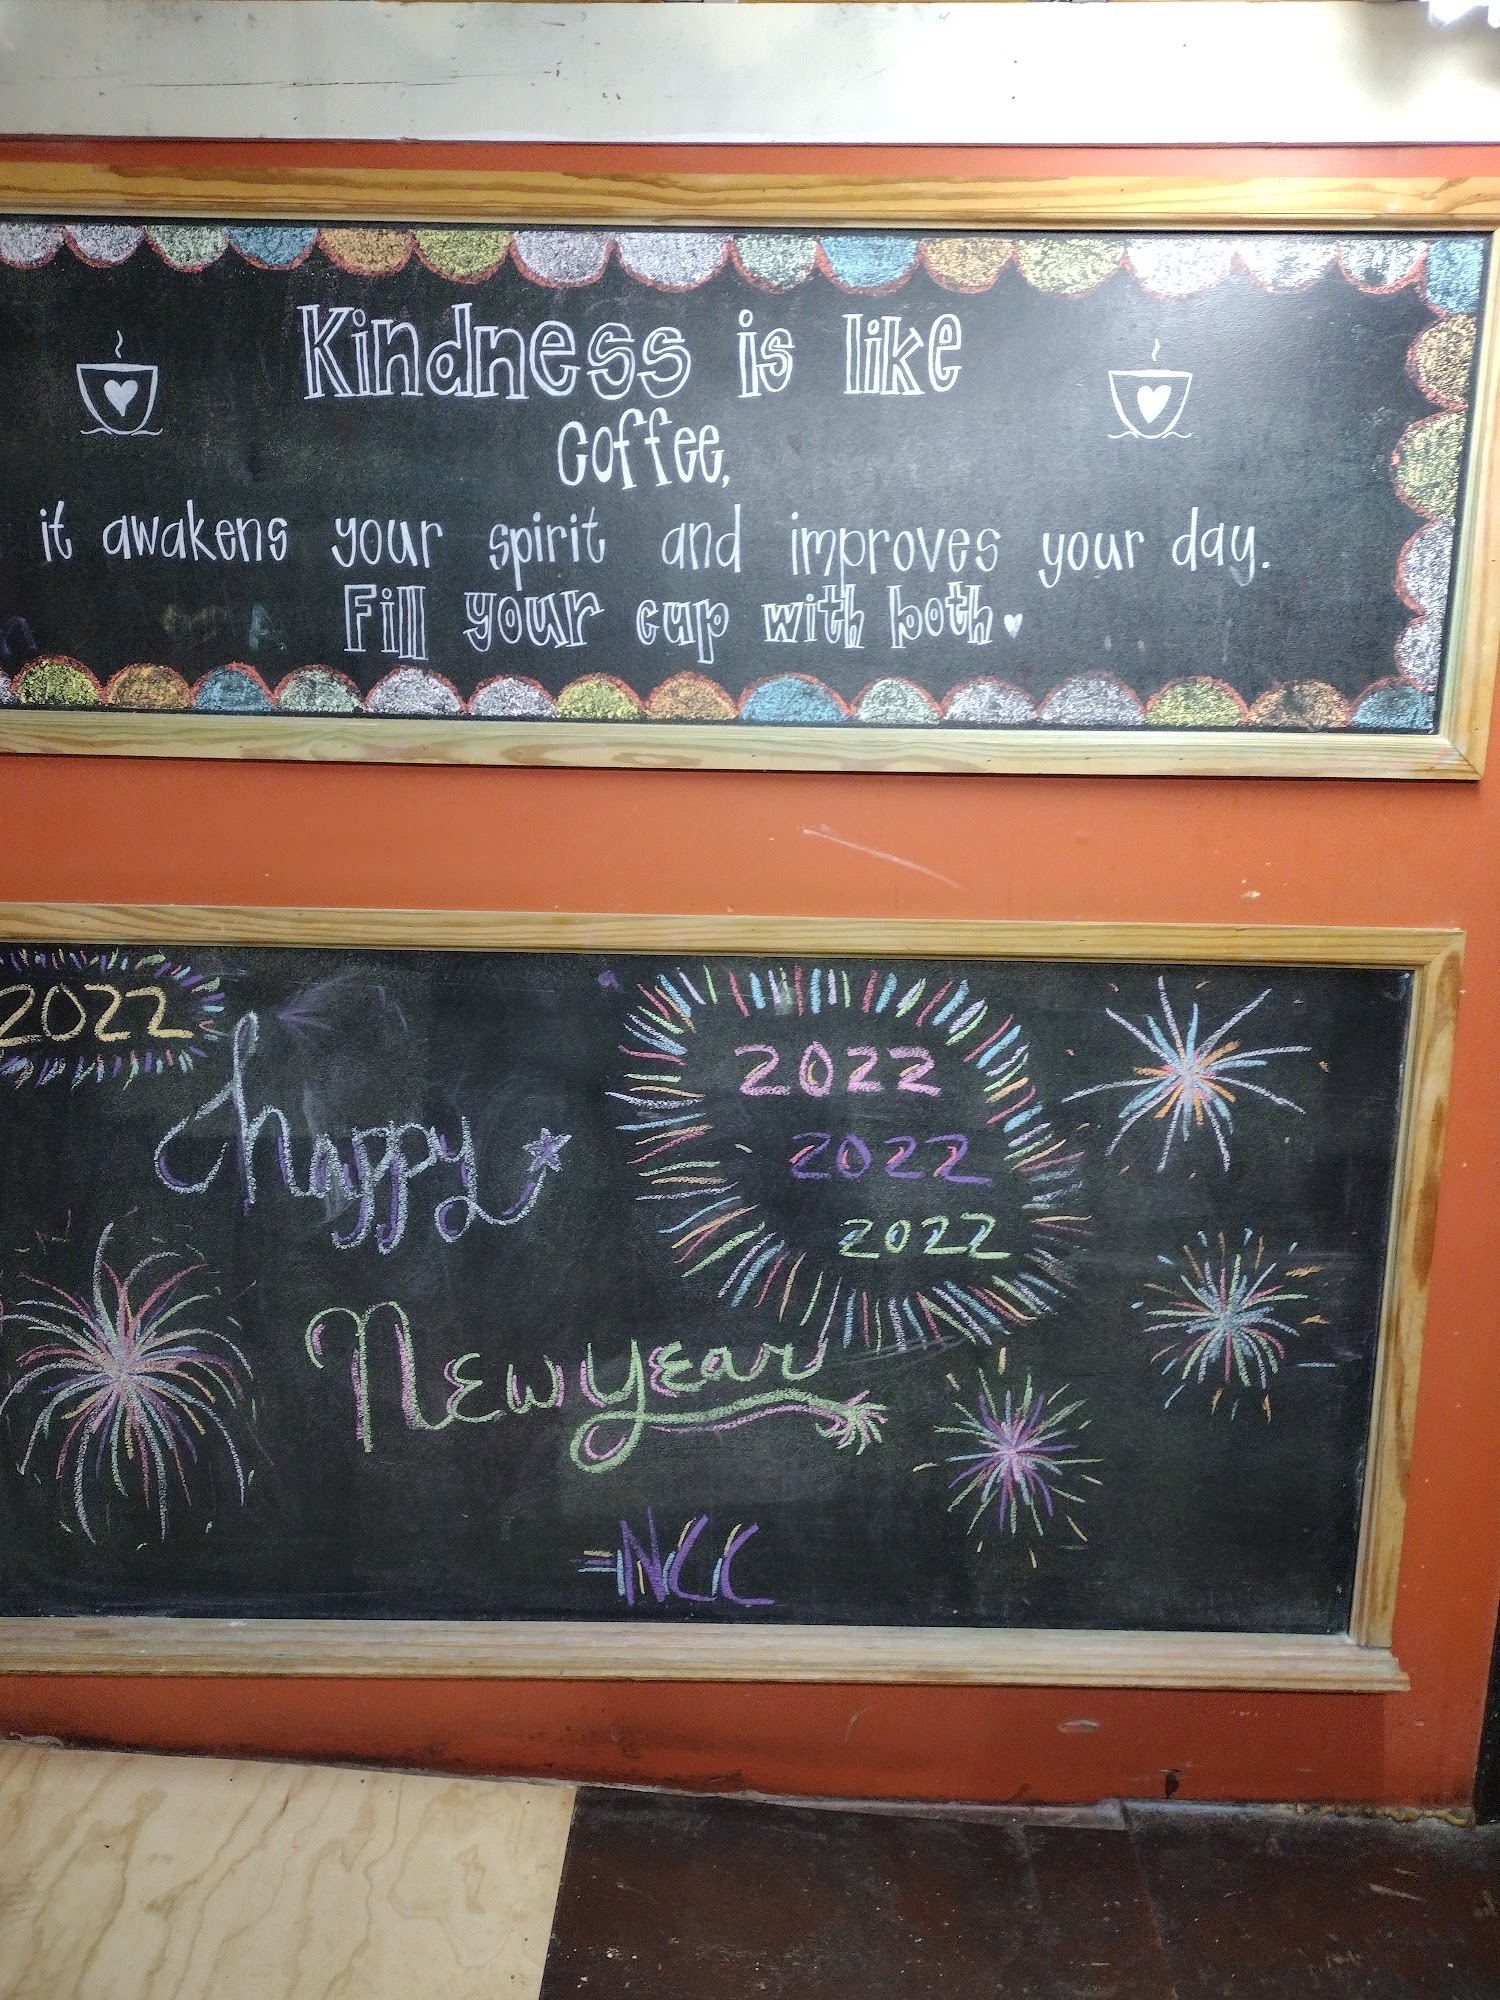 Kindness is like
coffee,
it awakens your spirit and improves your day.
Fill your cup with both
2022
happy
2022
2022
2022
New year
NCC